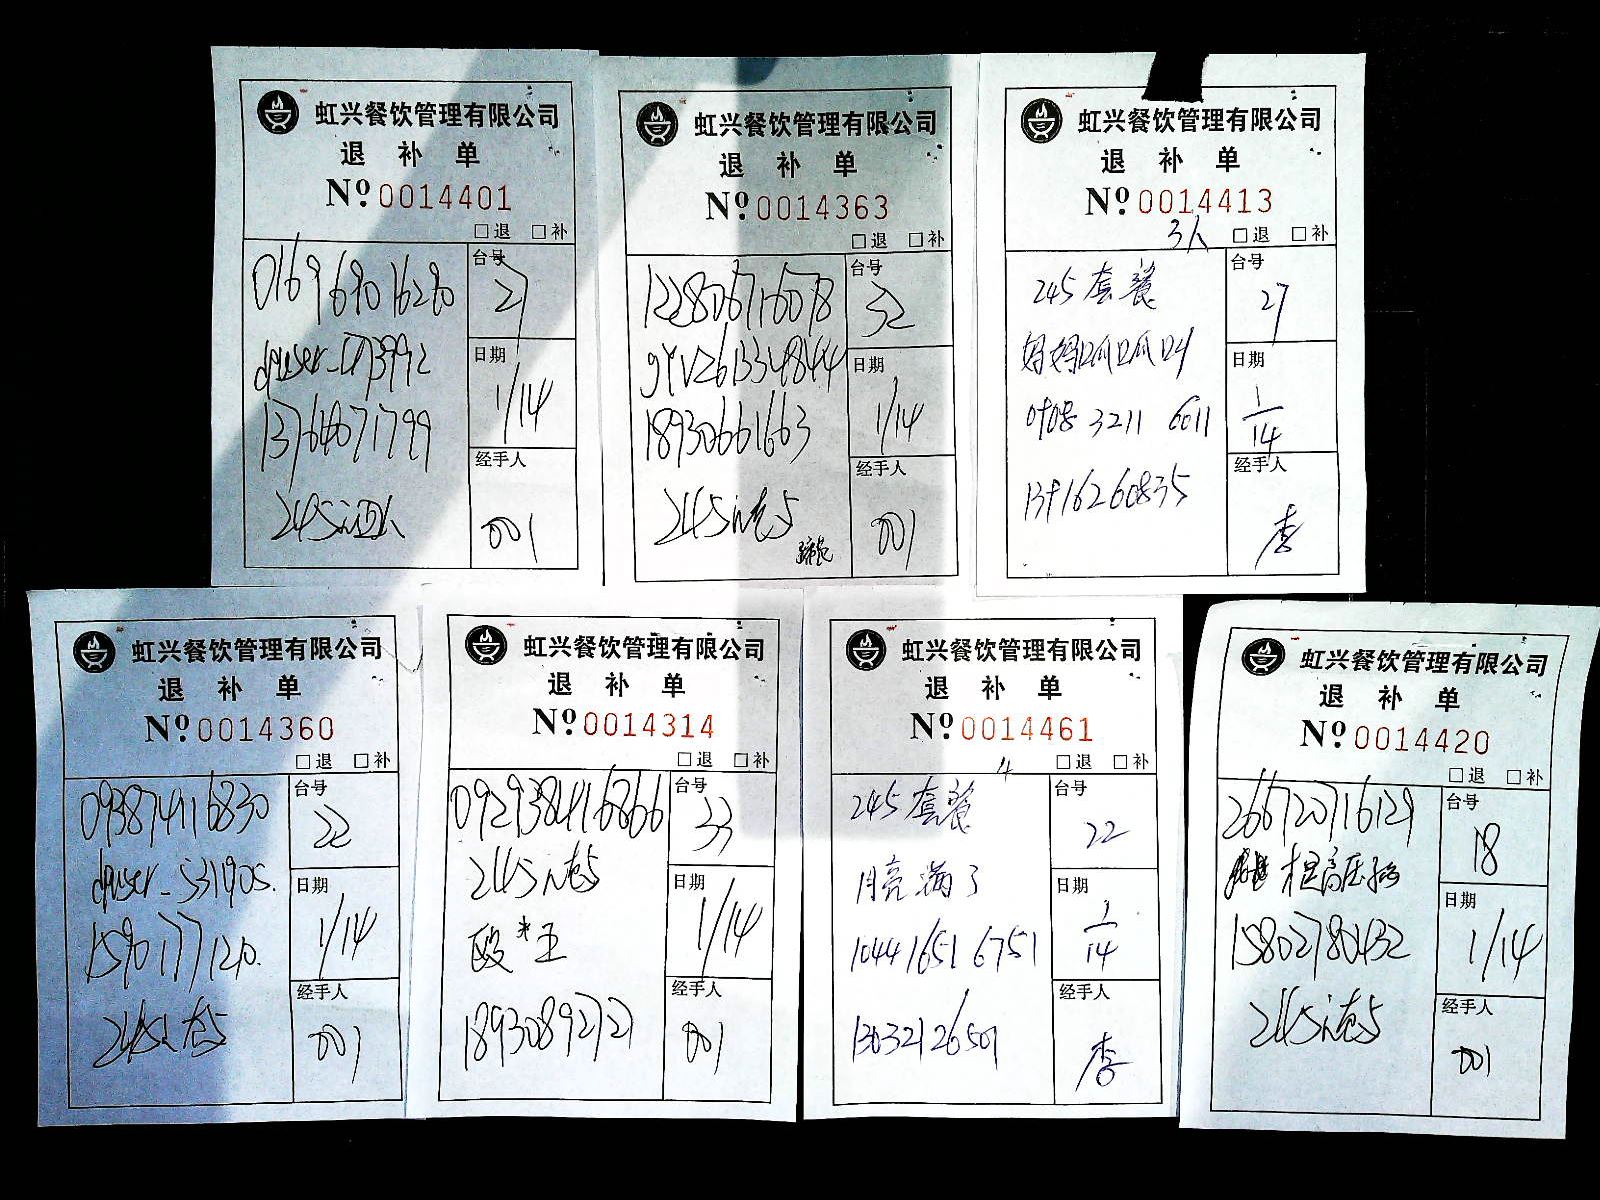 虹兴餐饮管理有限公司
退 补 单
Nº 0014401
□退 □补
0169 6890 16280
台号
27
dpuser_
日期
1/14
13764071799
经手人
001
245
虹兴餐饮管理有限公司
退 补 单
Nº 0014363
□退 □补
122806716078
台号
32
日期
1/14
18930661663
经手人
001
245
虹兴餐饮管理有限公司
退 补 单
Nº 0014413
3人 □退 □补
245 套餐
台号
27
妈妈呱呱叫
日期
1/14
3211 6011
经手人
李
虹兴餐饮管理有限公司
退 补 单
Nº 0014360
□退 □补
093874116830
台号
22
dpuser_531905.
日期
1/14
15901771210.
经手人
001
245
虹兴餐饮管理有限公司
退 补 单
Nº 0014314
□退 □补
台号
33
245
日期
1/14
殴*王
18930892721
经手人
001
虹兴餐饮管理有限公司
退 补 单
Nº 0014461
4 □退 □补
245 套餐
台号
22
月亮满了
日期
1/14
1044 1651 6751
13032126501
经手人
李
虹兴餐饮管理有限公司
退 补 单
Nº 0014420
□退 □补
266720716129
台号
18
日期
1/14
15802780432
经手人
001
245